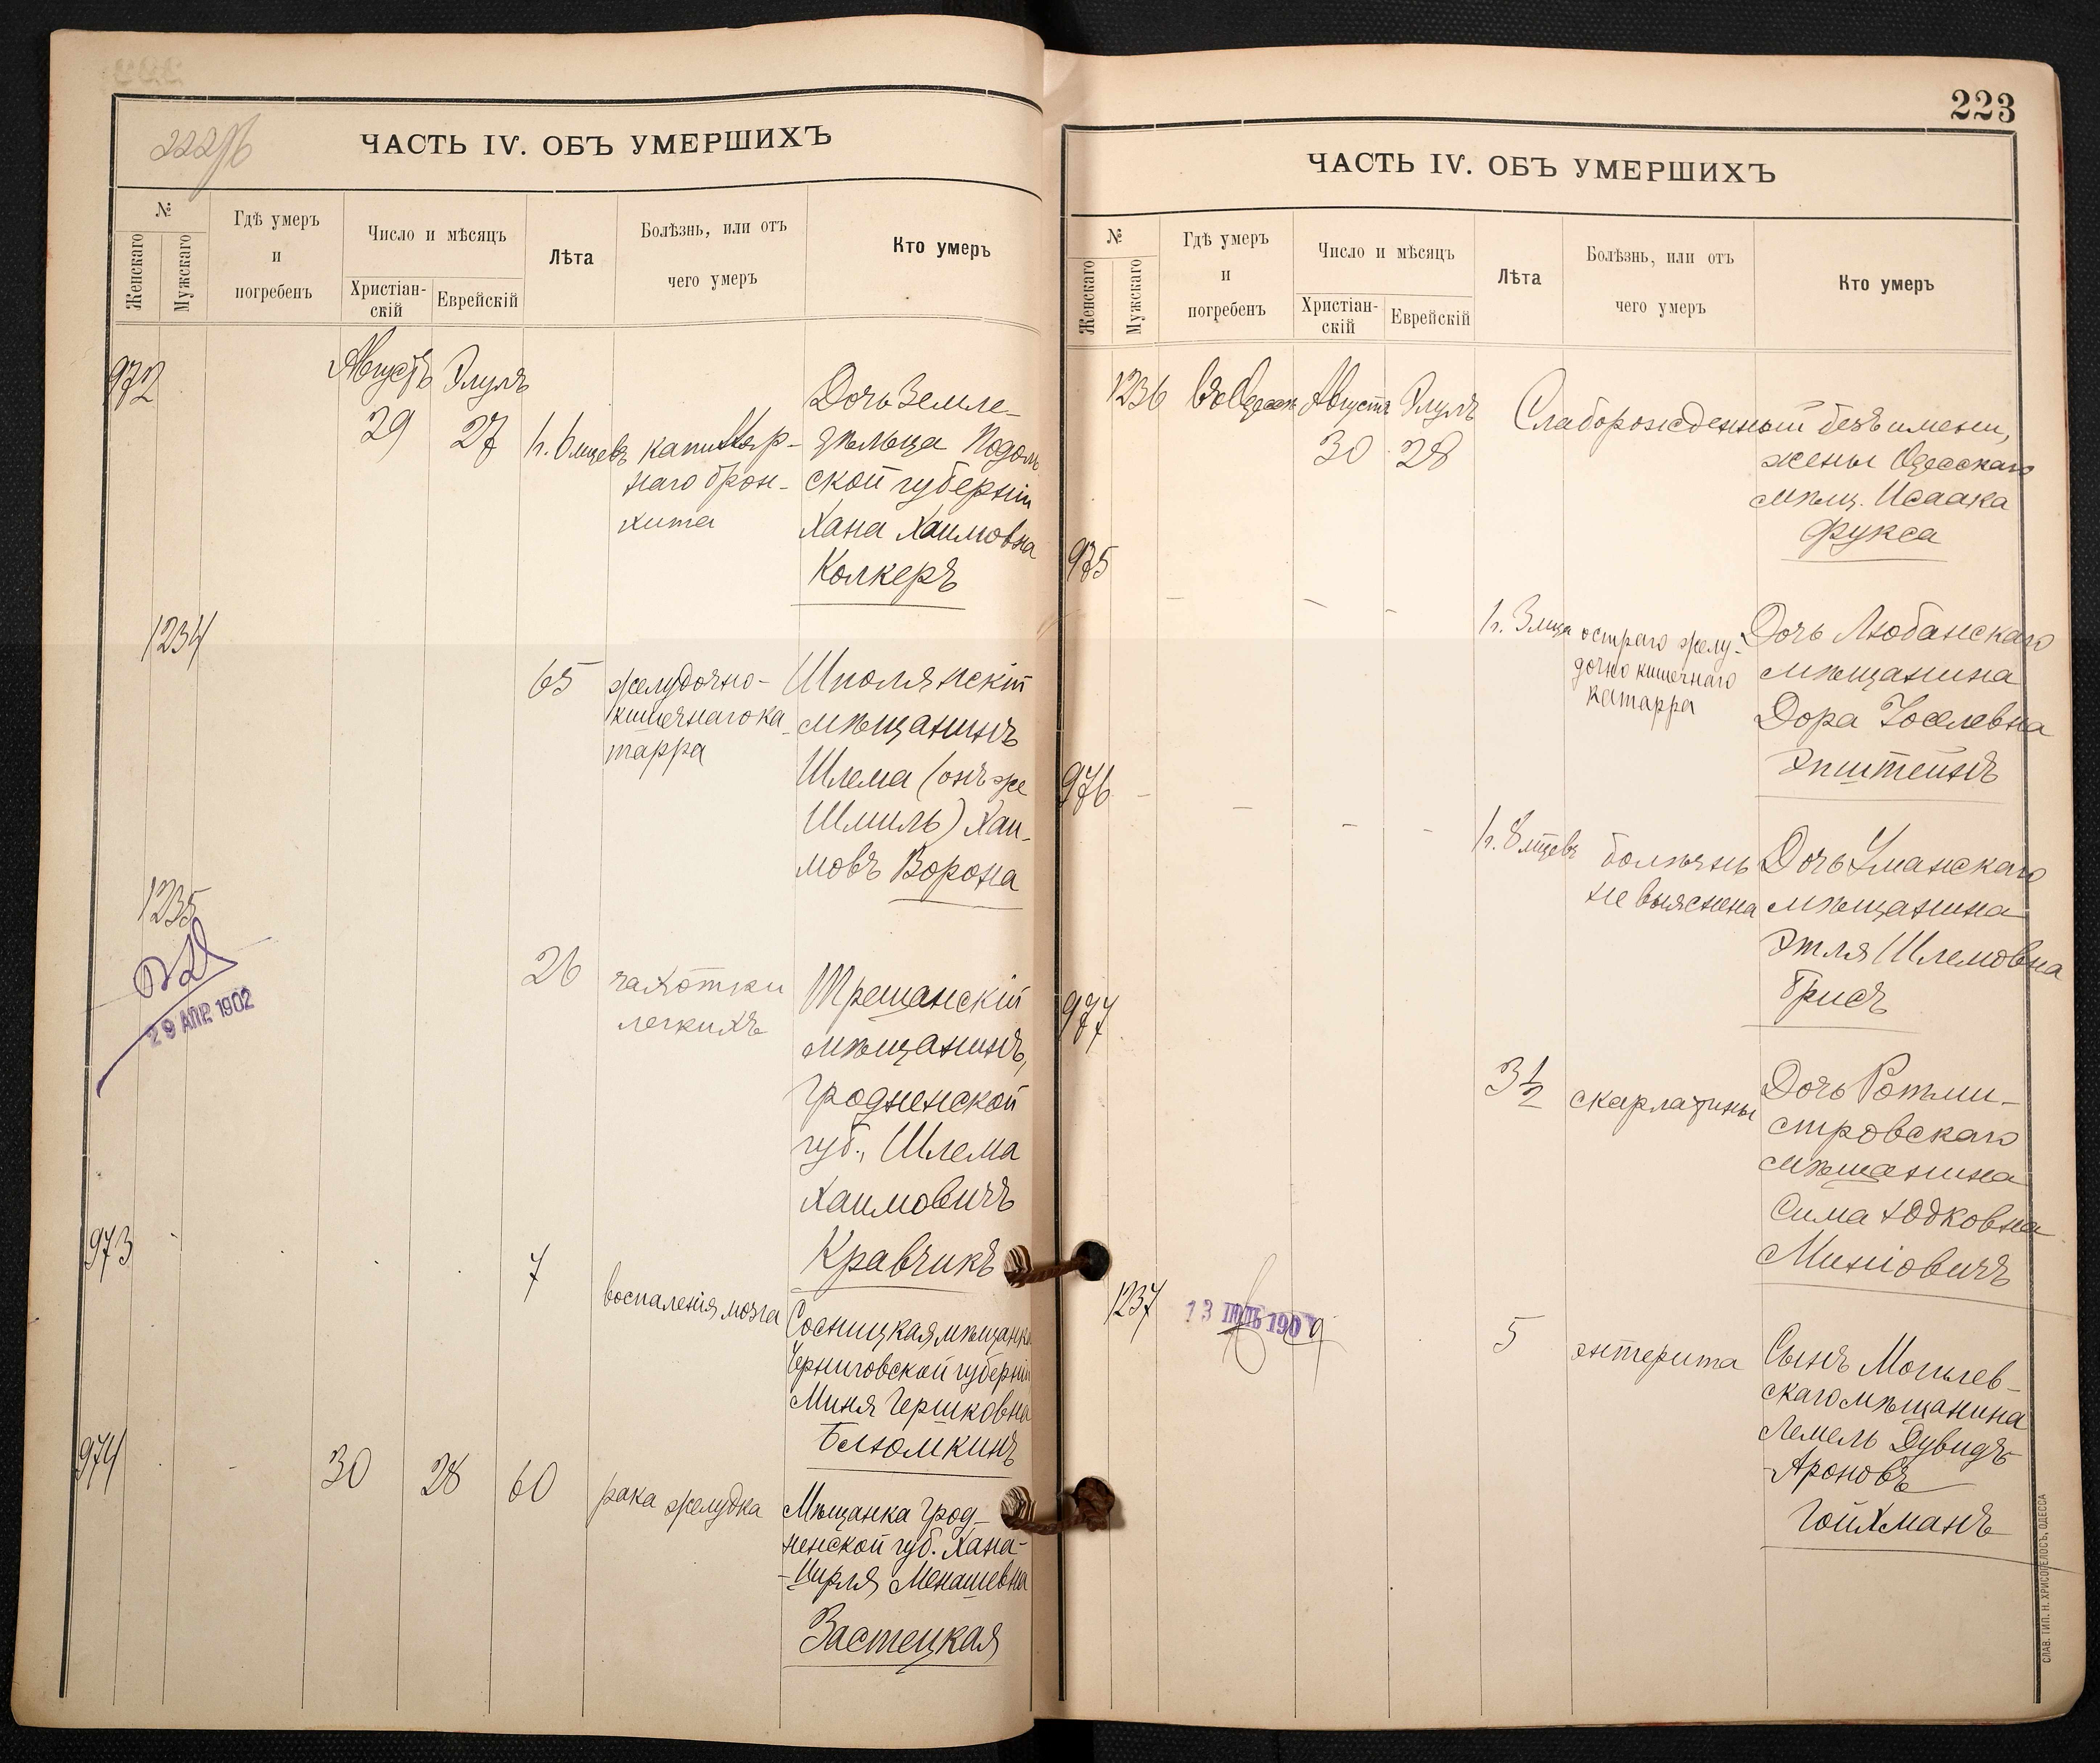 222об
ЧАСТЬ IV. ОБЪ УМЕРШИХЪ
№
Женскаго
Мужскаго
Гдѣ умеръ
и
погребенъ
Число и мѣсяцъ
Христіан-
скій
Еврейскій
Лѣта
Болѣзнь, или отъ
чего умеръ
Кто умеръ
972
Августъ
29
Элулъ
27
1 г. 6 мцевъ
капилляр-
наго брон-
хита
Дочь Земле-
дѣльца Подоль
ской губерніи
Хана Хаимовна
Колкеръ
1234
65
желудочно-
кишечнаго ка-
тарра
Шполянскій
мѣщанинъ
Шлема (онъ же
Шмиль) Хаи-
мовъ Ворона
1235
29 АПР. 1902
26
чахотки
легкихъ
Трещанскій
мѣщанинъ,
Гродненской
губ., Шлема
Хаимовичъ
Кравчикъ
973
7
воспаленія мозга
Сосницкая мѣщанка
Черниговской губерніи
Миня Гершковна
Белюмкинъ
974
30
28
60
рака желудка
Мѣщанка Грод-
ненской губ. Хана-
-Цирля Менашевна
Застецкая
223
ЧАСТЬ IV. ОБЪ УМЕРШИХЪ
№
Женскаго
Мужскаго
Гдѣ умеръ
и
погребенъ
Число и мѣсяцъ
Христіан-
скій
Еврейскій
Лѣта
Болѣзнь, или отъ
чего умеръ
Кто умеръ
1236
въ Одессѣ
Августъ
30
Элулъ
28
Слаборожденный безъ имени,
жены Одесскаго
мѣщ. Исаака
Фукса
975
1 г. 3 мца
остраго желу-
дочно кишечнаго
катарра
Дочь Любанскаго
мѣщанина
Дора Іоселевна
Эпштейнъ
976
1 г. 8 мцевъ
болѣзнь
не выяснена
Дочь Уманскаго
мѣщанина
Этля Шлемовна
Брисъ
977
3½
скарлатины
Дочь Ротми-
стровскаго
мѣщанина
Сима Юдковна
Миніовичъ
1237
13 ІЮЛЬ 1909
5
энтерита
Сынъ Могилев-
скаго мѣщанина
Лемель Дувидъ-
-Ароновъ
Гойхманъ
СЛАВ. ТИП. Н. ХРИСОГЕЛОСЪ, ОДЕССА